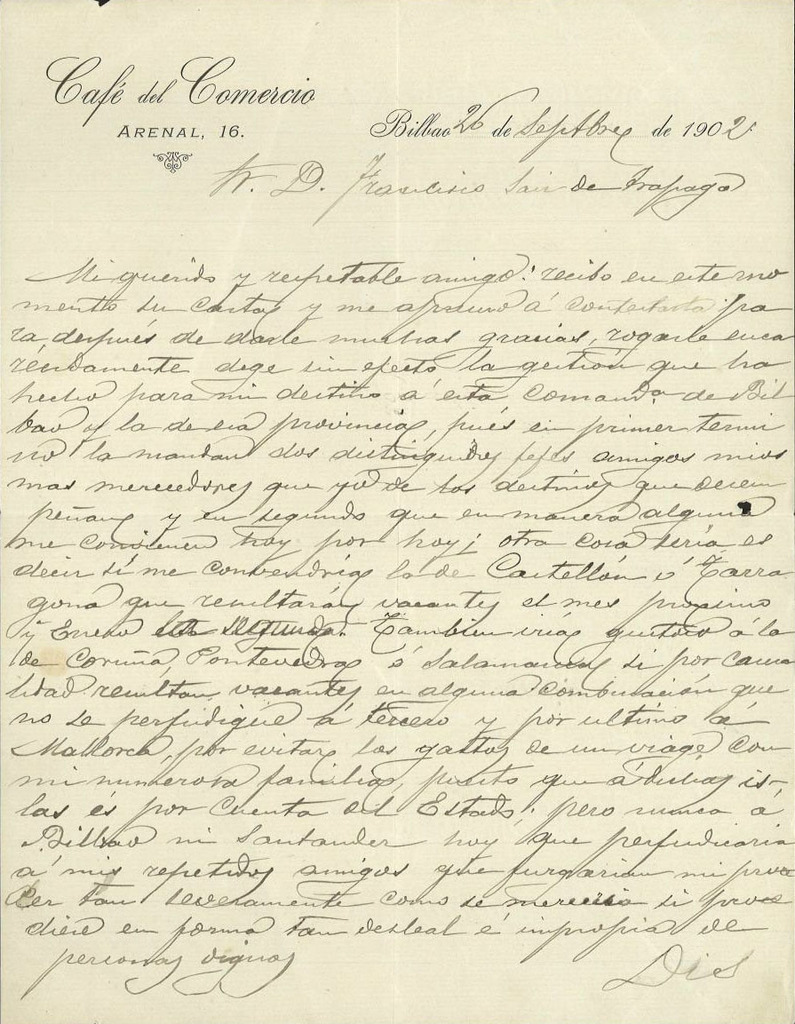 Café del Comercio
ARENAL, 16.
Bilbao 26 de Septbre de 1902
Sr. D. Francisco Sainz de Trapaga
Mi querido y respetable amigo: recibo en este mo
mento su carta y me apresuro á contestarla pa
ra, después de darle muchas gracias, rogarle enca
recidamente dege sin efecto la gestión que ha
hecho para mi destino á esta Comanda de Bil
bao y la de esa provincia, pués en primer termi
no la mandan dos distinguidos jefes amigos mios
mas merecedores que yo de los destinos que desem
peñan y en segundo que en manera alguna
me convienen hoy por hoy; otra cosa sería es
decir sí me convendría la de Castellón ó Tarra
gona que resultarán vacantes el mes proximo
y Enero la segunda. Tambien iría gustoso á la
de Coruña, Pontevedra ó Salamanca si por casua
lidad resultan vacantes en alguna combinación que
no se perjudique á tercero y por ultimo á
Mallorca, por evitar los gastos de un viage con
mi numerosa familia, puesto que á dichas is-
las és por cuenta del Estado; pero nunca á
Bilbao ni Santander hoy que perjudicaria
á mis repetidos amigos que jurgarian mi proce
der tan severamente como se mereceria si proce
diese en forma tan desleal é impropia de
personas dignas
Dis